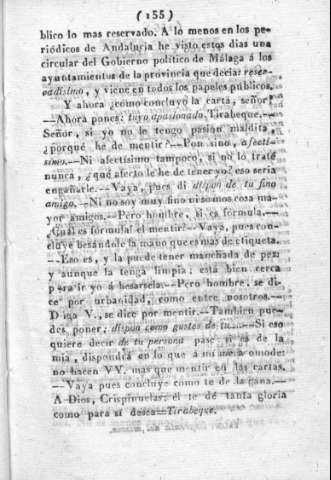 (155)
blico lo mas reservado. A lo menos en los pe-
riódicos de Andalucía he visto estos dias una
circular del Gobierno político de Málaga á los
ayuntamientos de la provincia que decia: reser-
vadísimo, y viene en todos los papeles públicos.
Y ahora ¿como concluyo la carta, señor?
—Ahora pones: tuyo apasionado, Tirabeque.—
Señor, si yo no le tengo pasion maldita,
¿porqué he de mentir?—Pon sino, afectí-
simo.—Ni afectísimo tampoco, si no lo traté
nunca, ¿qué afecto le he de tener yo? eso seria
engañarle.—Vaya, pues di dispon de tu fino
amigo.—Ni no soy muy fino ni somos cosa ma-
yor amigos.—Pero hombre, si es fórmula.—
¿Cuál es fórmula? el mentir?—Vaya, pues con-
cluye besándole la mano que es mas de etiqueta.
—Eso es, y la puede tener manchada de pez;
y aunque la tenga limpia; está bien cerca
para ir yo á besarsela.—Pero hombre, se di-
ce por urbanidad, como entre nosotros.—
Diga V., se dice por mentir.—Tambien pue-
des poner, dispon como gustes de tu....—Si eso
quiere decir de tu persona pase; si es de la
mia, dispondrá en lo que á mí me acomode:
no hacen VV. mas que mentir en las cartas.
—Vaya pues concluye como te dé la gana.—
A Dios, Crispinuelas: él te dé tanta gloria
como para sí desea—Tirabeque.